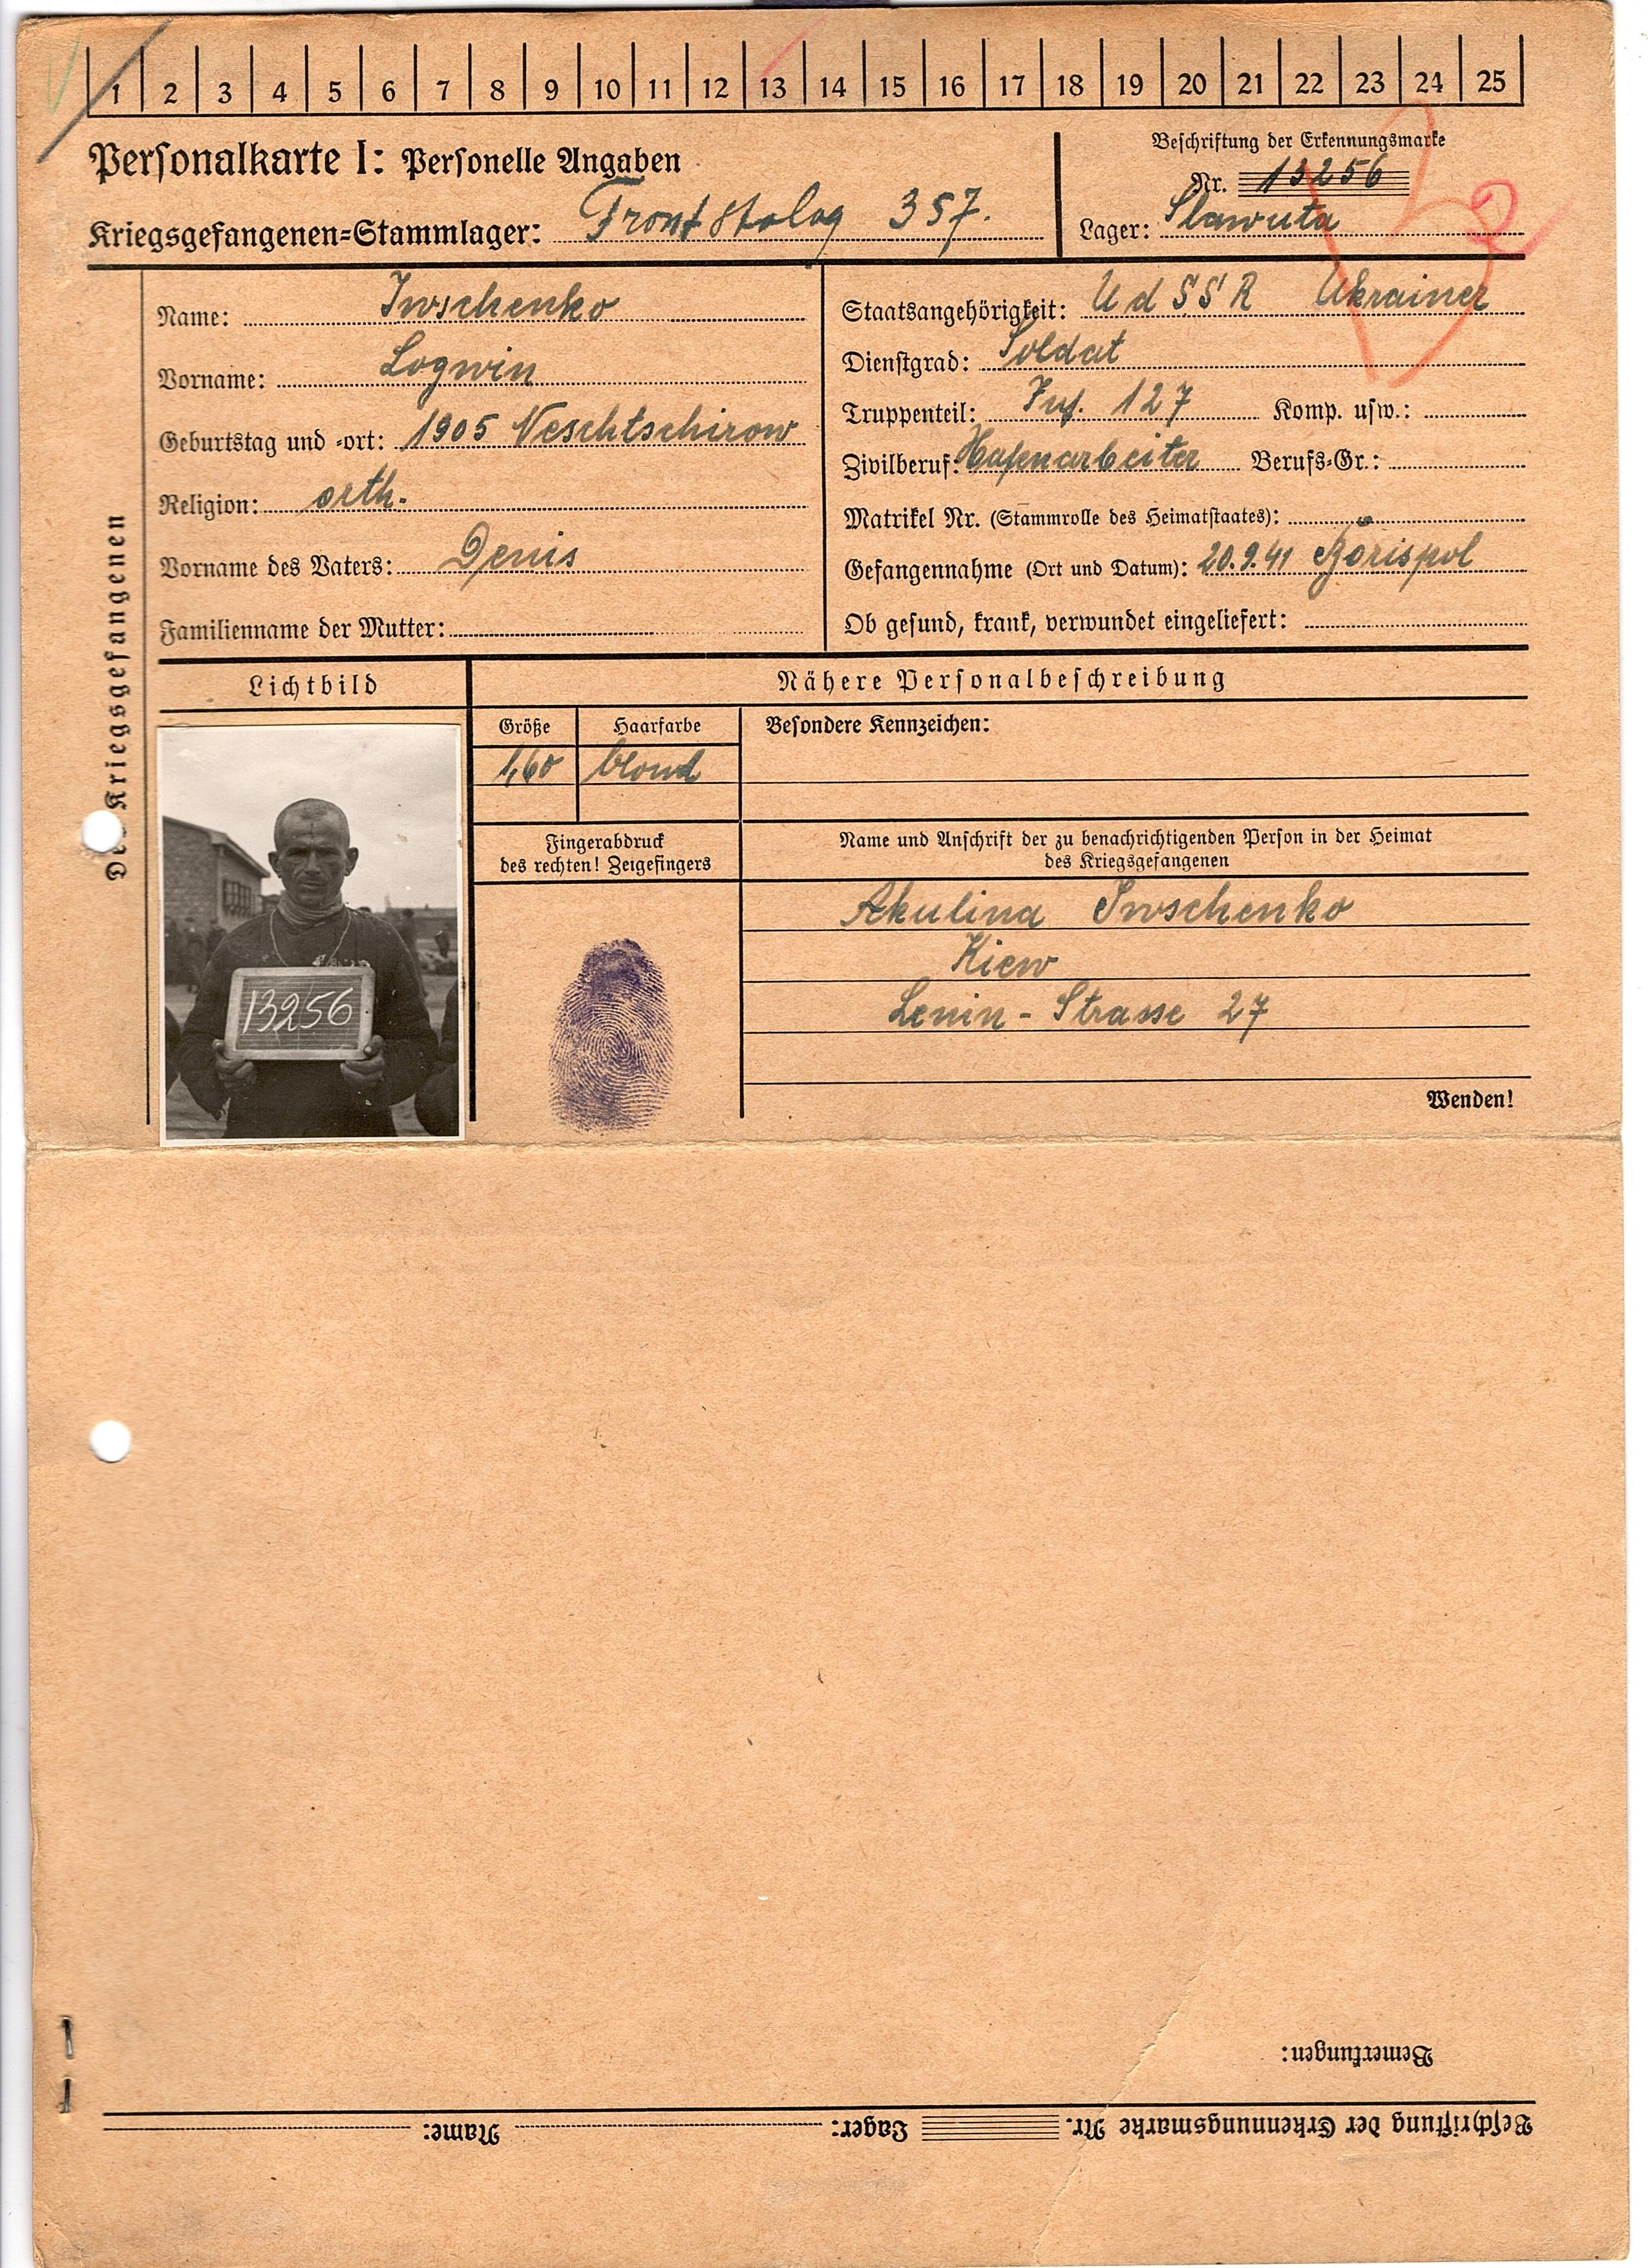 1 2 3 4 5 6 7 8 9 10 11 12 13 14 15 16 17 18 19 20 21 22 23 24 25
Personalkarte I: Personelle Angaben
Kriegsgefangenen=Stammlager: Front Stalag 357.
Beschriftung der Erkennungsmarke
Nr. 13256
Lager: Slawuta
Des Kriegsgefangenen
Name: Iwschenko
Vorname: Logwin
Geburtstag und =ort: 1905 Neschtschirow
Religion: orth.
Vorname des Vaters: Denis
Familienname der Mutter:
Staatsangehörigkeit: UdSSR Ukrainer
Dienstgrad: Soldat
Truppenteil: Inf. 127 Komp. usw.:
Zivilberuf: Hafenarbeiter Berufs=Gr.:
Matrikel Nr. (Stammrolle des Heimatstaates):
Gefangennahme (Ort und Datum): 20.9.41 Borispol
Ob gesund, krank, verwundet eingeliefert:
Lichtbild
13256
Nähere Personalbeschreibung
Größe Haarfarbe Besondere Kennzeichen:
1,60 blond
Fingerabdruck
des rechten! Zeigefingers
Name und Anschrift der zu benachrichtigenden Person in der Heimat
des Kriegsgefangenen
Akulina Iwschenko
Kiew
Lenin - Strasse 27
Wenden!
Bemerkungen:
Beschriftung der Erkennungsmarke Nr. Lager: Name: